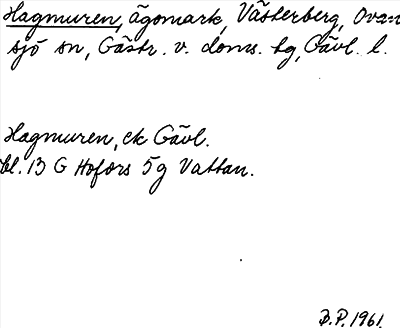 Hagmuren, ägomark, Västerberg, Ovan
sjö sn, Gästr. v. doms. tg, Gävl. l.
Hagmuren, ek Gävl.
bl. 13 G Hofors 5g Vattan.
B.P. 1961.